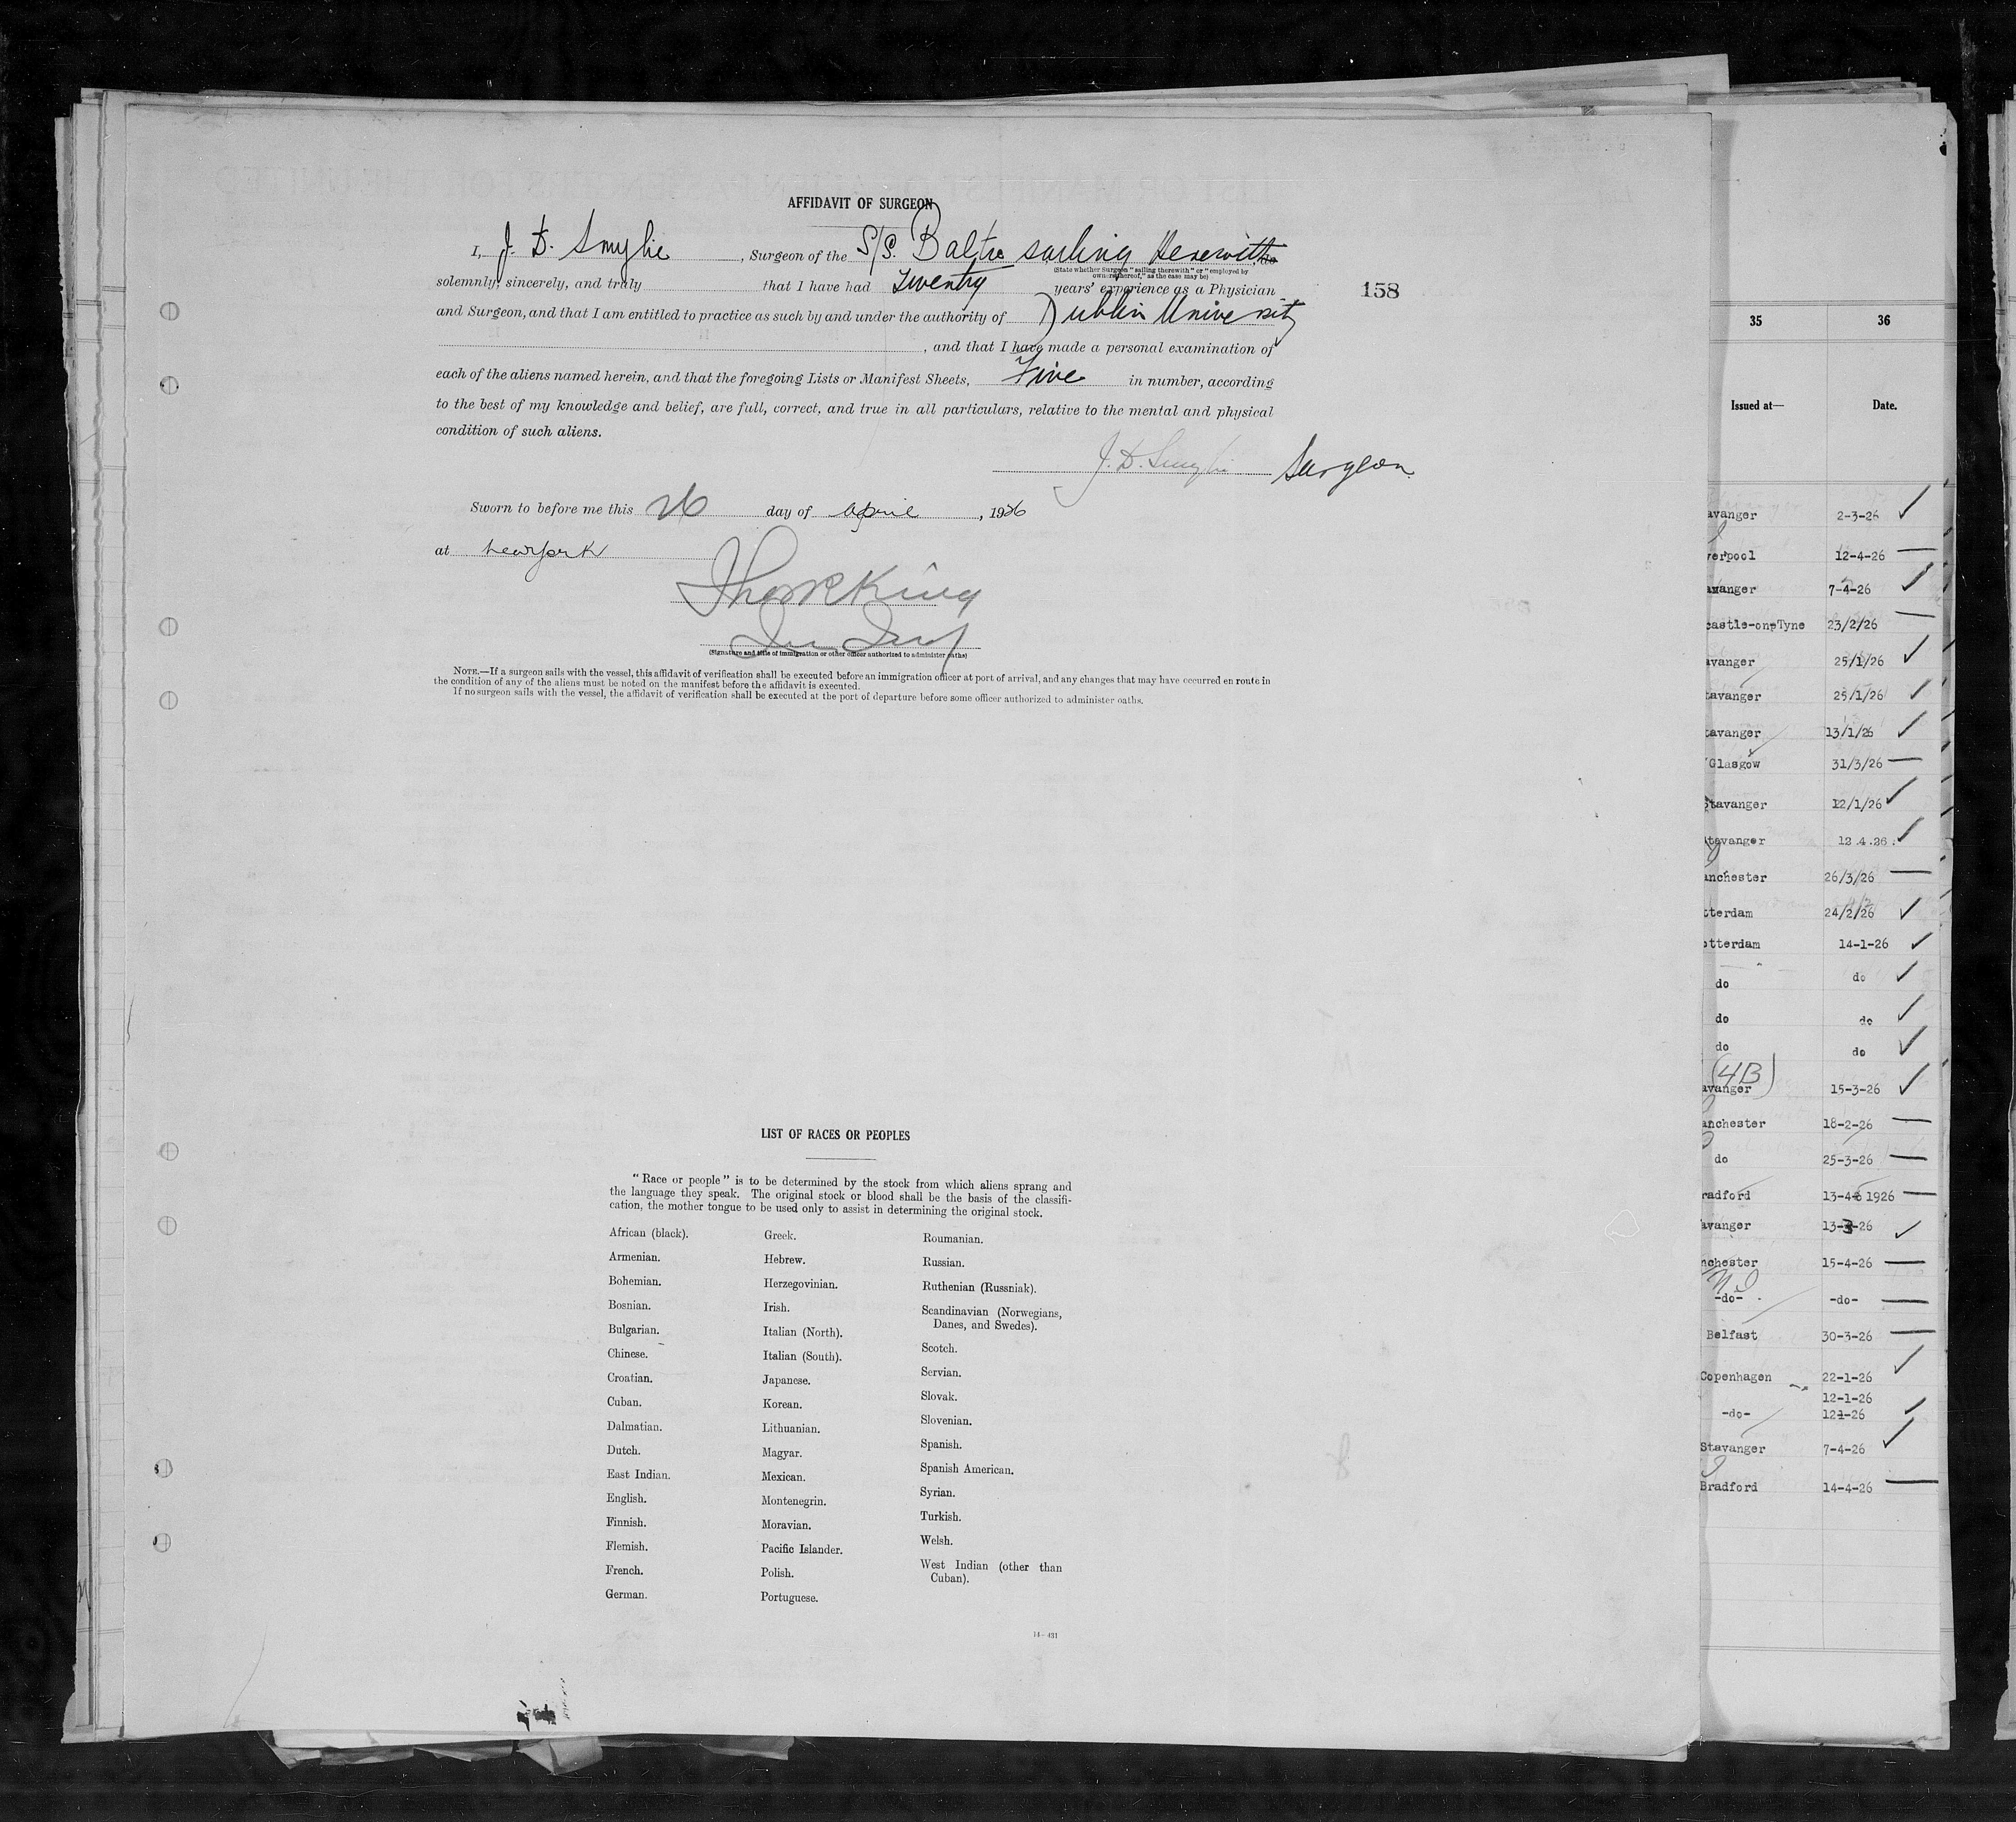 AFFIDAVIT OF SURGEON
I, J. D. Smylie, Surgeon of the S/S. Baltic sailing therewith
(State whether Surgeon "sailing therewith" or "employed by
owners thereof," as the case may be)
solemnly, sincerely, and truly that I have had Twenty years' experience as a Physician
158
and Surgeon, and that I am entitled to practice as such by and under the authority of Dublin University
, and that I have made a personal examination of
each of the aliens named herein, and that the foregoing Lists or Manifest Sheets, Five in number, according
to the best of my knowledge and belief, are full, correct, and true in all particulars, relative to the mental and physical
condition of such aliens.
J. D. Smylie Surgeon
Sworn to before me this 26 day of April, 1926
at New York
King
(Signature and title of immigration or other officer authorized to administer oaths)
NOTE.—If a surgeon sails with the vessel, this affidavit of verification shall be executed before an immigration officer at port of arrival, and any changes that may have occurred en route in
the condition of any of the aliens must be noted on the manifest before the affidavit is executed.
If no surgeon sails with the vessel, the affidavit of verification shall be executed at the port of departure before some officer authorized to administer oaths.
LIST OF RACES OR PEOPLES
"Race or people" is to be determined by the stock from which aliens sprang and
the language they speak. The original stock or blood shall be the basis of the classifi-
cation, the mother tongue to be used only to assist in determining the original stock.
African (black).
Armenian.
Bohemian.
Bosnian.
Bulgarian.
Chinese.
Croatian.
Cuban.
Dalmatian.
Dutch.
East Indian.
English.
Finnish.
Flemish.
French.
German.
Greek.
Hebrew.
Herzegovinian.
Irish.
Italian (North).
Italian (South).
Japanese.
Korean.
Lithuanian.
Magyar.
Mexican.
Montenegrin.
Moravian.
Pacific Islander.
Polish.
Portuguese.
Roumanian.
Russian.
Ruthenian (Russniak).
Scandinavian (Norwegians,
Danes, and Swedes).
Scotch.
Servian.
Slovak.
Slovenian.
Spanish.
Spanish American.
Syrian.
Turkish.
Welsh.
West Indian (other than
Cuban).
14—431
35 36
Issued at— Date.
avanger 2-3-26
verpool 12-4-26
avanger 7-4-26
castle-on-Tyne 23/2/26
avanger 25/1/26
tavanger 25/1/26
tavanger 13/1/26
Glasgow 31/3/26
Stavanger 12/1/26
tavanger 12.4.26
anchester 26/3/26
tterdam 24/2/26
otterdam 14-1-26
do do
do do
do do
(4B)
avanger 15-3-26
anchester 18-2-26
do 25-3-26
radford 13-4-1926
avanger 13-3-26
nchester 15-4-26
-do- -do-
Belfast 30-3-26
Copenhagen 22-1-26
12-1-26
-do- 121-26
Stavanger 7-4-26
Bradford 14-4-26